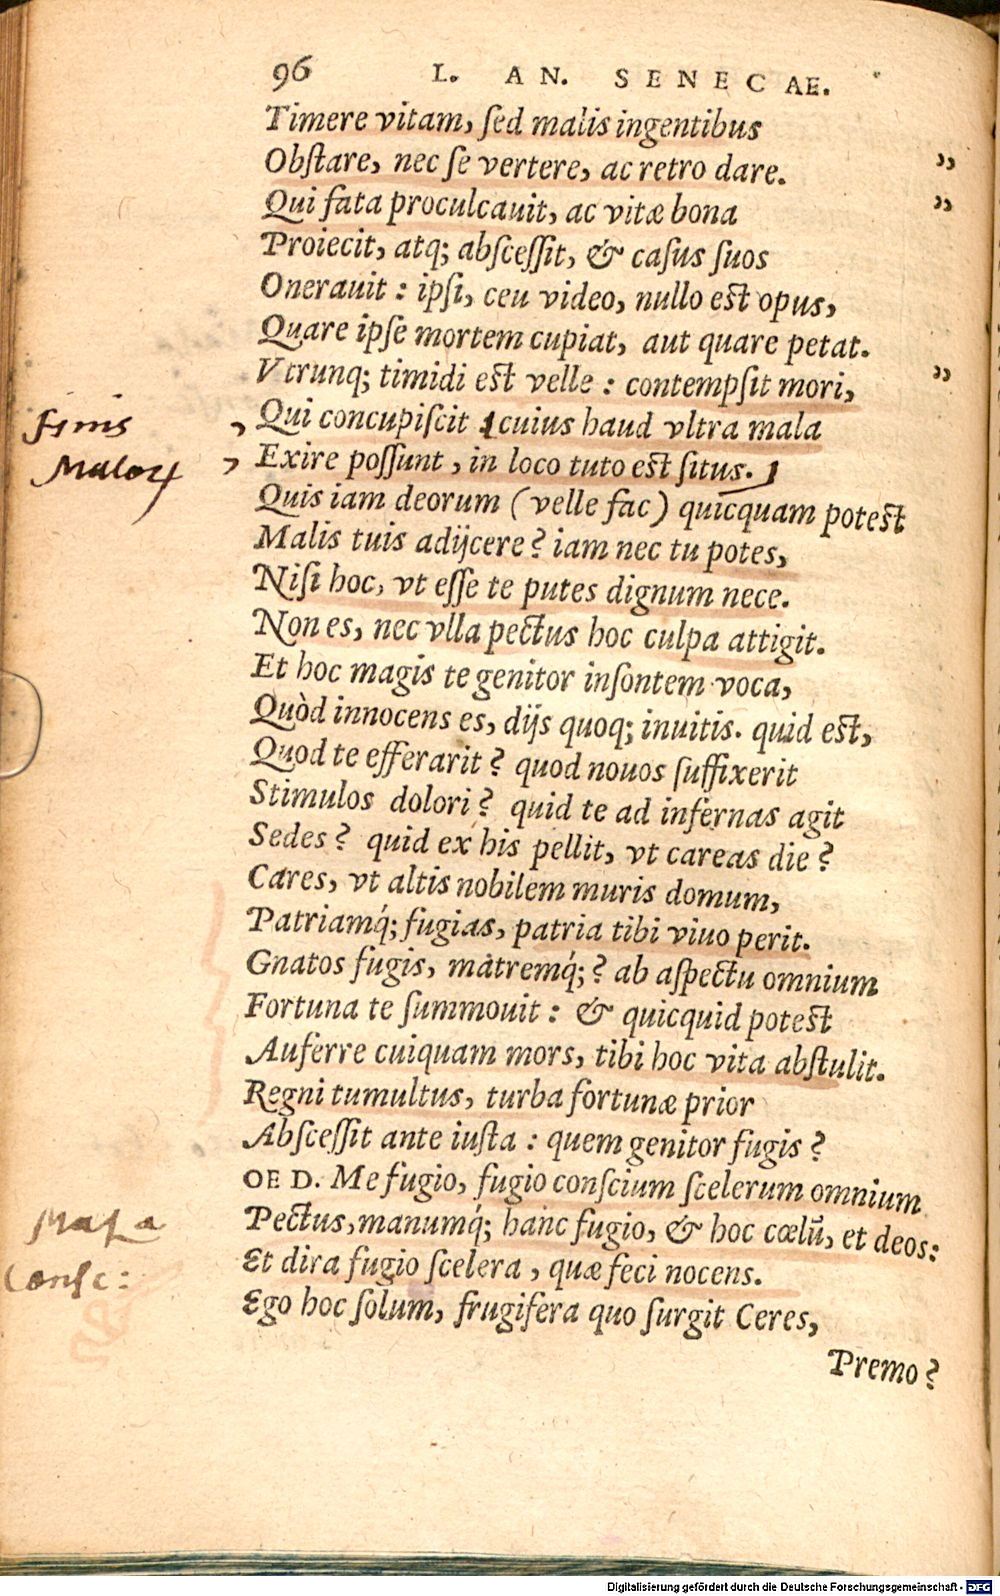 96 L. AN. SENECAE.
Timere vitam, sed malis ingentibus
Obstare, nec se vertere, ac retro dare. ”
Qui fata proculcauit, ac vitæ bona ”
Proiecit, atq; abscessit, & casus suos
Onerauit : ipsi, ceu video, nullo est opus,
Quare ipse mortem cupiat, aut quare petat.
Vtrunq; timidi est velle : contempsit mori, ”
Qui concupiscit cuius haud vltra mala
Exire possunt, in loco tuto est situs.
finis
Malor
Quis iam deorum (velle fac) quicquam potest
Malis tuis adijcere? iam nec tu potes,
Nisi hoc, vt esse te putes dignum nece.
Non es, nec vlla pectus hoc culpa attigit.
Et hoc magis te genitor insontem voca,
Quòd innocens es, dijs quoq; inuitis. quid est,
Quod te efferarit? quod nouos suffixerit
Stimulos dolori? quid te ad infernas agit
Sedes? quid ex his pellit, vt careas die?
Cares, vt altis nobilem muris domum,
Patriamq́; fugias, patria tibi viuo perit.
Gnatos fugis, matremq́;? ab aspectu omnium
Fortuna te summouit : & quicquid potest
Auferre cuiquam mors, tibi hoc vita abstulit.
Regni tumultus, turba fortunæ prior
Abscessit ante iusta : quem genitor fugis?
OED. Me fugio, fugio conscium scelerum omnium
Pectus, manumq́; hanc fugio, & hoc cœlũ, et deos:
Et dira fugio scelera, quæ feci nocens.
Mala
Consc:
Ego hoc solum, frugifera quo surgit Ceres,
Premo?
Digitalisierung gefördert durch die Deutsche Forschungsgemeinschaft - DFG